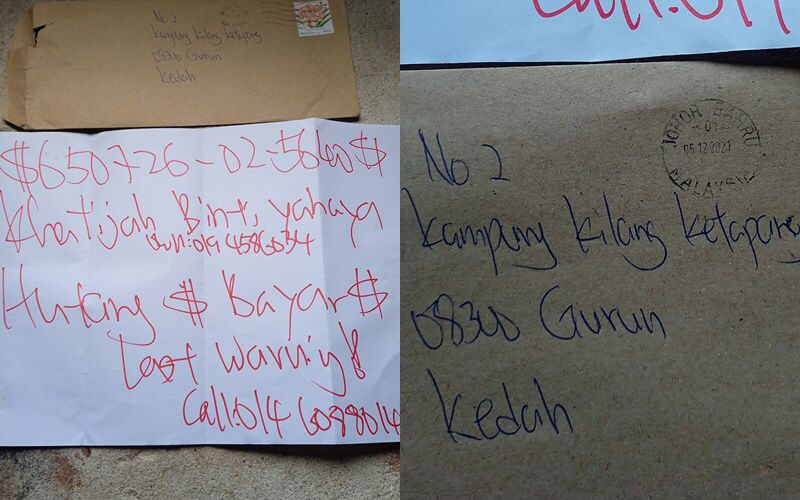 No 2
Kampung Kilang Ketapang
08300 Gurun
Kedah
$650726-02-5640$
Khatijah Bint, yahaya
019 4586034
Hutang $ Bayar $
Last Warning!
Call:014 6088014
Call:014
JOHOR BAHRU
01
05 12 2021
MALAYSIA
No 2
Kampung Kilang Ketapang
08300 Gurun
Kedah